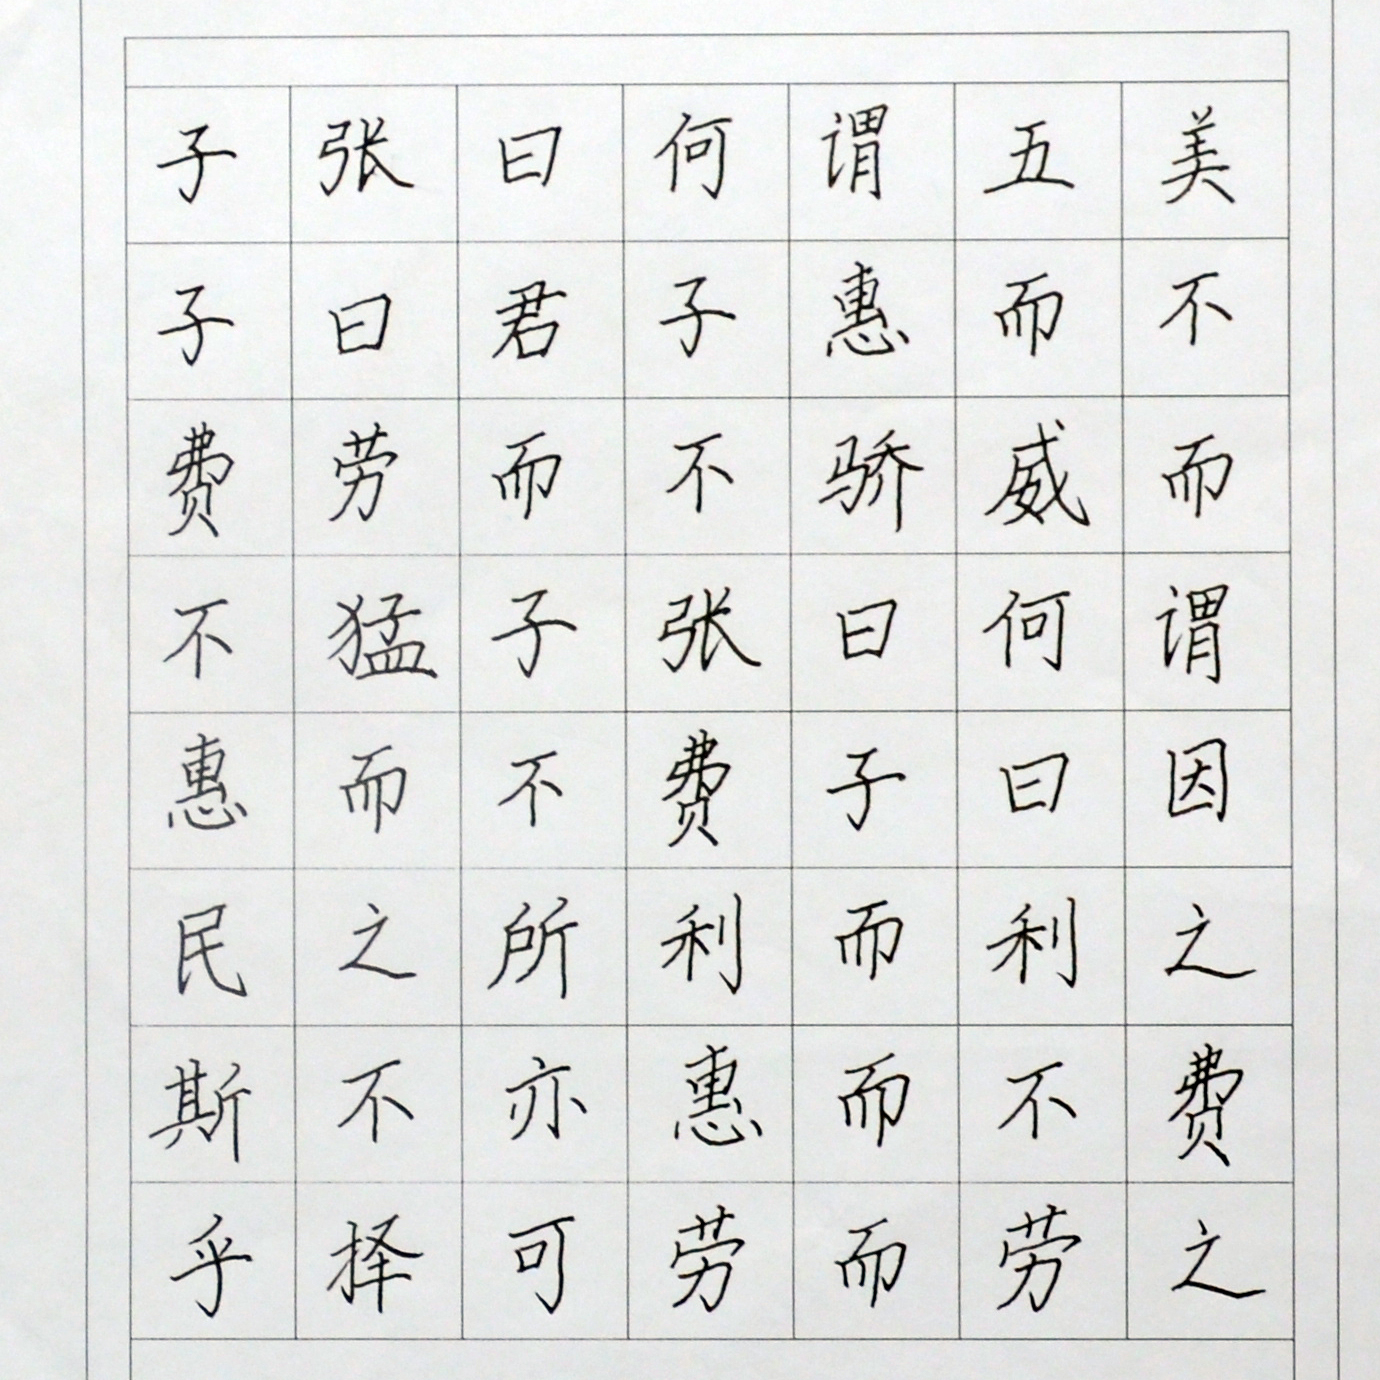 子张曰何谓五美
子曰君子惠而不
费劳而不骄威而
不猛子张曰何谓
惠而不费子曰因
民之所利而利之
斯不亦惠而不费
乎择可劳而劳之